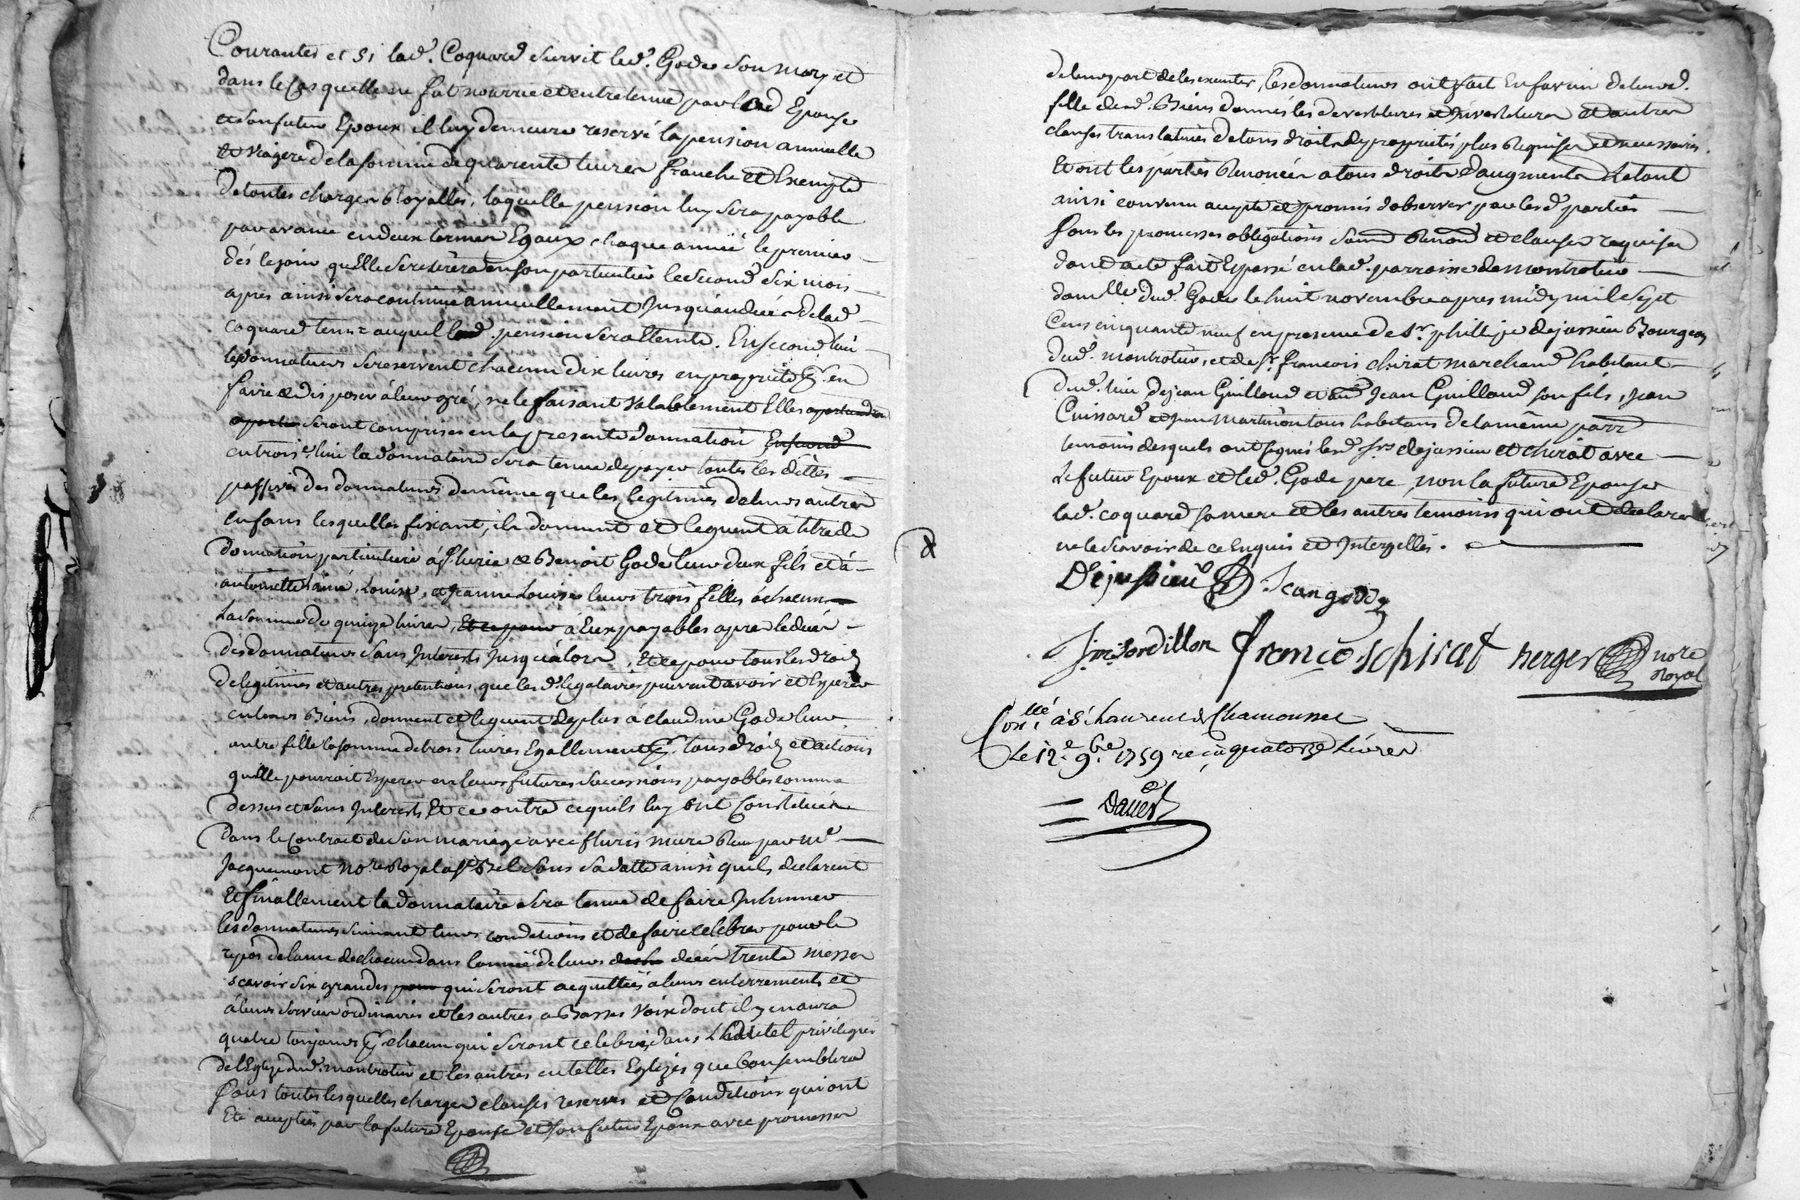 Courantes et si lad. Coquard survit led. Gode son mary et
dans le cas quelle ne fut nourrie et entretenue par lad Epouse
et son futur Epoux il luy demeure reservé la pension annuelle
et viagere de la somme de quarente livres franche et Exempte
de toutes charges Royalles, laquelle pension luy sera payable
par avance en deux termes Egaux chaque année le premier
dés le jour quelle se retirera en son particulier le second six mois
apres ainsi sera continué annuellement jusquau decés de lad
coquard tems auquel lad. pension sera Eteinte. En second lieu
les donnateurs se reservent chacun dix livres en proprieté pr. en
faire et disposer à leur gré, ne le faisant valablement Elles
seront comprises en la presente donnation En second
en trois.e lieu la donnataire sera tenue de payer toutes les dettes
passives des donnateurs de même que les legitimes de leurs autres
Enfans lesquelles fixant, ils donnent et leguent à titre de
donnation particuliere à fleurie et Benoit Gode leur deux fils et à
antoinette Louise, et jeanne Louise leurs trois filles à chacun
La somme de quinze livres, Et ce pour à Eux payables apres le decés
des donnateurs sans Interests jusqu'alors, Et ce pour tous les droits
de legitimes et autres pretentions que les d. legataires peuvent avoir et Esperer
en leurs Biens, donnent et leguent de plus à claudine Gode leur
autre fille la somme de trois livres Egallement pr. tous droits et actions
quelle pourroit Esperer en leurs futures successions payables comme
dessus et sans Interests Et ce outre ce quils luy ont Constitué
dans le Contract de son mariage avec fleuris mure Reçu par me
Jacquemont nore Royal a sous sa datte ainsi quils declarent
Et finallement la donnataire sera tenue de faire Inhumer
les donnateurs suivant leurs conditions et de faire celebrer pour le
repos de lame de chacun dans lannée de leurs decés trente messes
scavoir six grandes pour qui seront acquittées à leurs enterrements et
à leurs services ordinaires et les autres a Basses voix dont il y en aura
quatre toujours pr chacun qui seront celebrées dans Lhautel privilegié
de l'Eglise dud. montrotier et les autres en telles Eglises que bon semblera
sous toutes lesquelles charges clauses reserves et Conditions qui ont
Eté acceptées par la future Epouse et son futur Epoux avec promesse
de leur part de les executer, les donnateurs ont fait En faveur de leurd.
fille desd. Biens donnés les devestitures et Investitures et autres
clauses translatives de tous droits de proprietés plus Requises et necessaires.
Et ont les parties Renoncé a tous droits d'augments Le tout
ainsi convenu accepté et promis d'observer par lesd. parties
sous les promesses obligations soumd Renond et clauses requises
dont acte fait Et passé en lad. parroisse de montrotier
dans lle dud. Gode le huit novembre apres midy mil sept
Cens cinquante neuf en presence de Sr. phillipe dejussieu Bourgeois
dud. montrotier et de Sr. francois chirat marchand habitant
dud. lieu de jean Guilloud et aud. Jean Guilloud son fils, jean
Cuissard et jean Martinon tous habitans de la même parr.
temoins desquels ont signés lesd. srs dejussieu et chirat avec
le futur Epoux et led. Gode pere, non la future Epouse
lad. coquard sa mere et les autres temoins qui ont declarer
ne le scavoir de ce Enquis et Interpellés.
Dejussieu Jean gode
Sordillon françoschirat Berger nore
Royal
Conllé à St. Laurent de Chamousset
Le 12.e 9bre. 1759 reçu quatorze Livres
Dauest